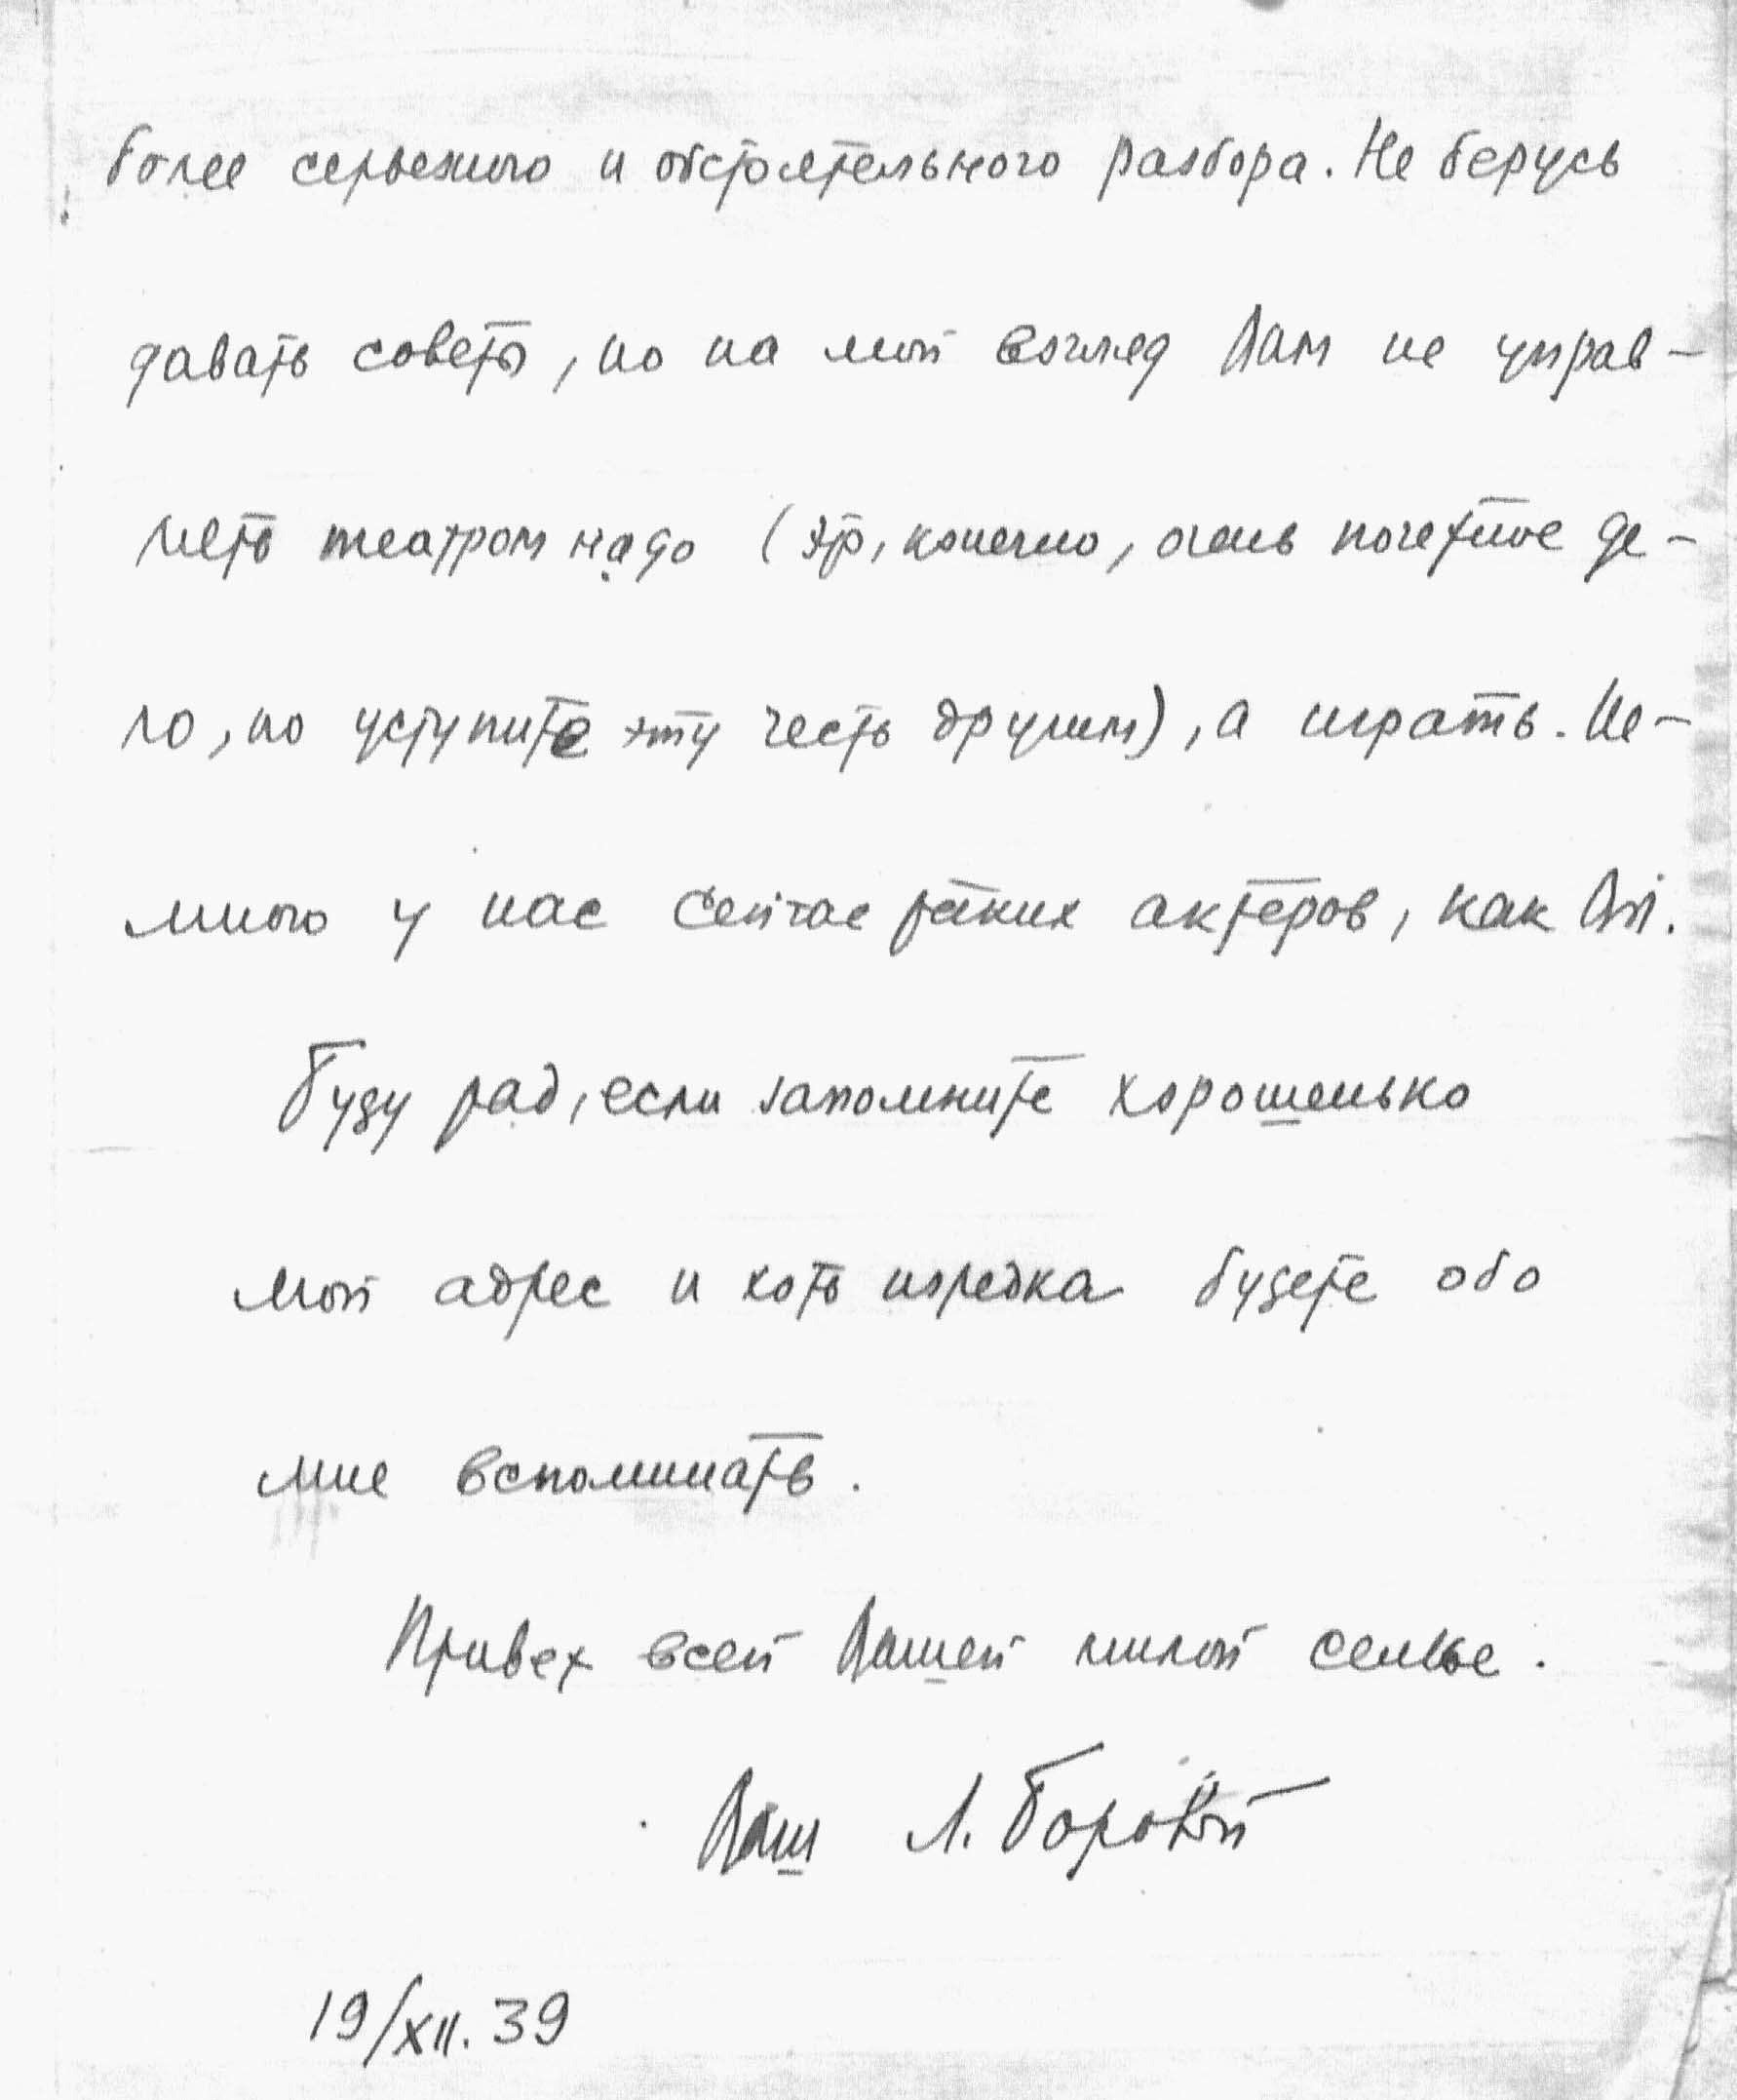 более серьезного и обстоятельного разбора. Не берусь
давать советы, но на мой взгляд Вам не управ-
лять театром надо (это, конечно, очень почетное де-
ло, но уступите эту честь другим), а играть. Не-
много у нас сейчас таких актеров, как Вы.
Буду рад, если запомните хорошенько
мой адрес и хоть изредка будете обо
мне вспоминать.
Привет всей Вашей милой семье.
Ваш Л. Боровой
19/XII. 39